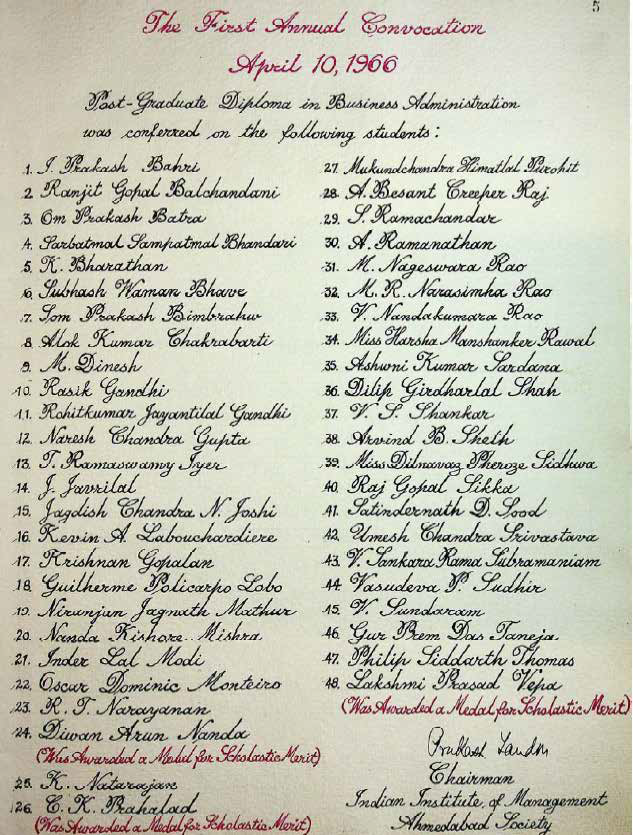 5
The First Annual Convocation
April 10, 1966
Post-Graduate Diploma in Business Administration
was conferred on the following students:
1. I. Prakash Bahri
2. Ranjit Gopal Balchandani
3. Om Prakash Batra
4. Sarbatmal Sampatmal Bhandari
5. K. Bharathan
6. Subhash Waman Bhave
7. Som Prakash Bimbrahw
8. Alok Kumar Chakrabarti
9. M. Dinesh
10. Rasik Gandhi
11. Rohitkumar Jayantilal Gandhi
12. Naresh Chandra Gupta
13. T. Ramaswamy Iyer
14. J. Javrilal
15. Jagdish Chandra N. Joshi
16. Kevin A. Labouchardiere
17. Krishnan Gopalan
18. Guilherme Policarpo Lobo
19. Niranjan Jagnath Mathur
20. Nanda Kishore Mishra
21. Inder Lal Modi
22. Oscar Dominic Monteiro
23. R. T. Narayanan
24. Diwan Arun Nanda
(Was Awarded a Medal for Scholastic Merit)
25. K. Natarajan
26. C. K. Prahalad
(Was Awarded a Medal for Scholastic Merit)
27. Mukundchandra Himatlal Purohit
28. A. Besant Creeper Raj
29. S. Ramachandar
30. A. Ramanathan
31. M. Nageswara Rao
32. M. R. Narasimha Rao
33. V. Nandakumara Rao
34. Miss Harsha Manshanker Rawal
35. Ashwni Kumar Sardana
36. Dilip Girdharlal Shah
37. V. S. Shankar
38. Arvind B. Sheth
39. Miss Dilnavaz Pheroze Sidhwa
40. Raj Gopal Sikka
41. Satindernath D. Sood
42. Umesh Chandra Srivastava
43. V. Sankara Rama Subramaniam
44. Vasudeva P. Sudhir
45. V. Sundaram
46. Gur Prem Das Taneja
47. Philip Siddarth Thomas
48. Lakshmi Prasad Vepa
(Was Awarded a Medal for Scholastic Merit)
Chairman
Indian Institute of Management
Ahmedabad Society